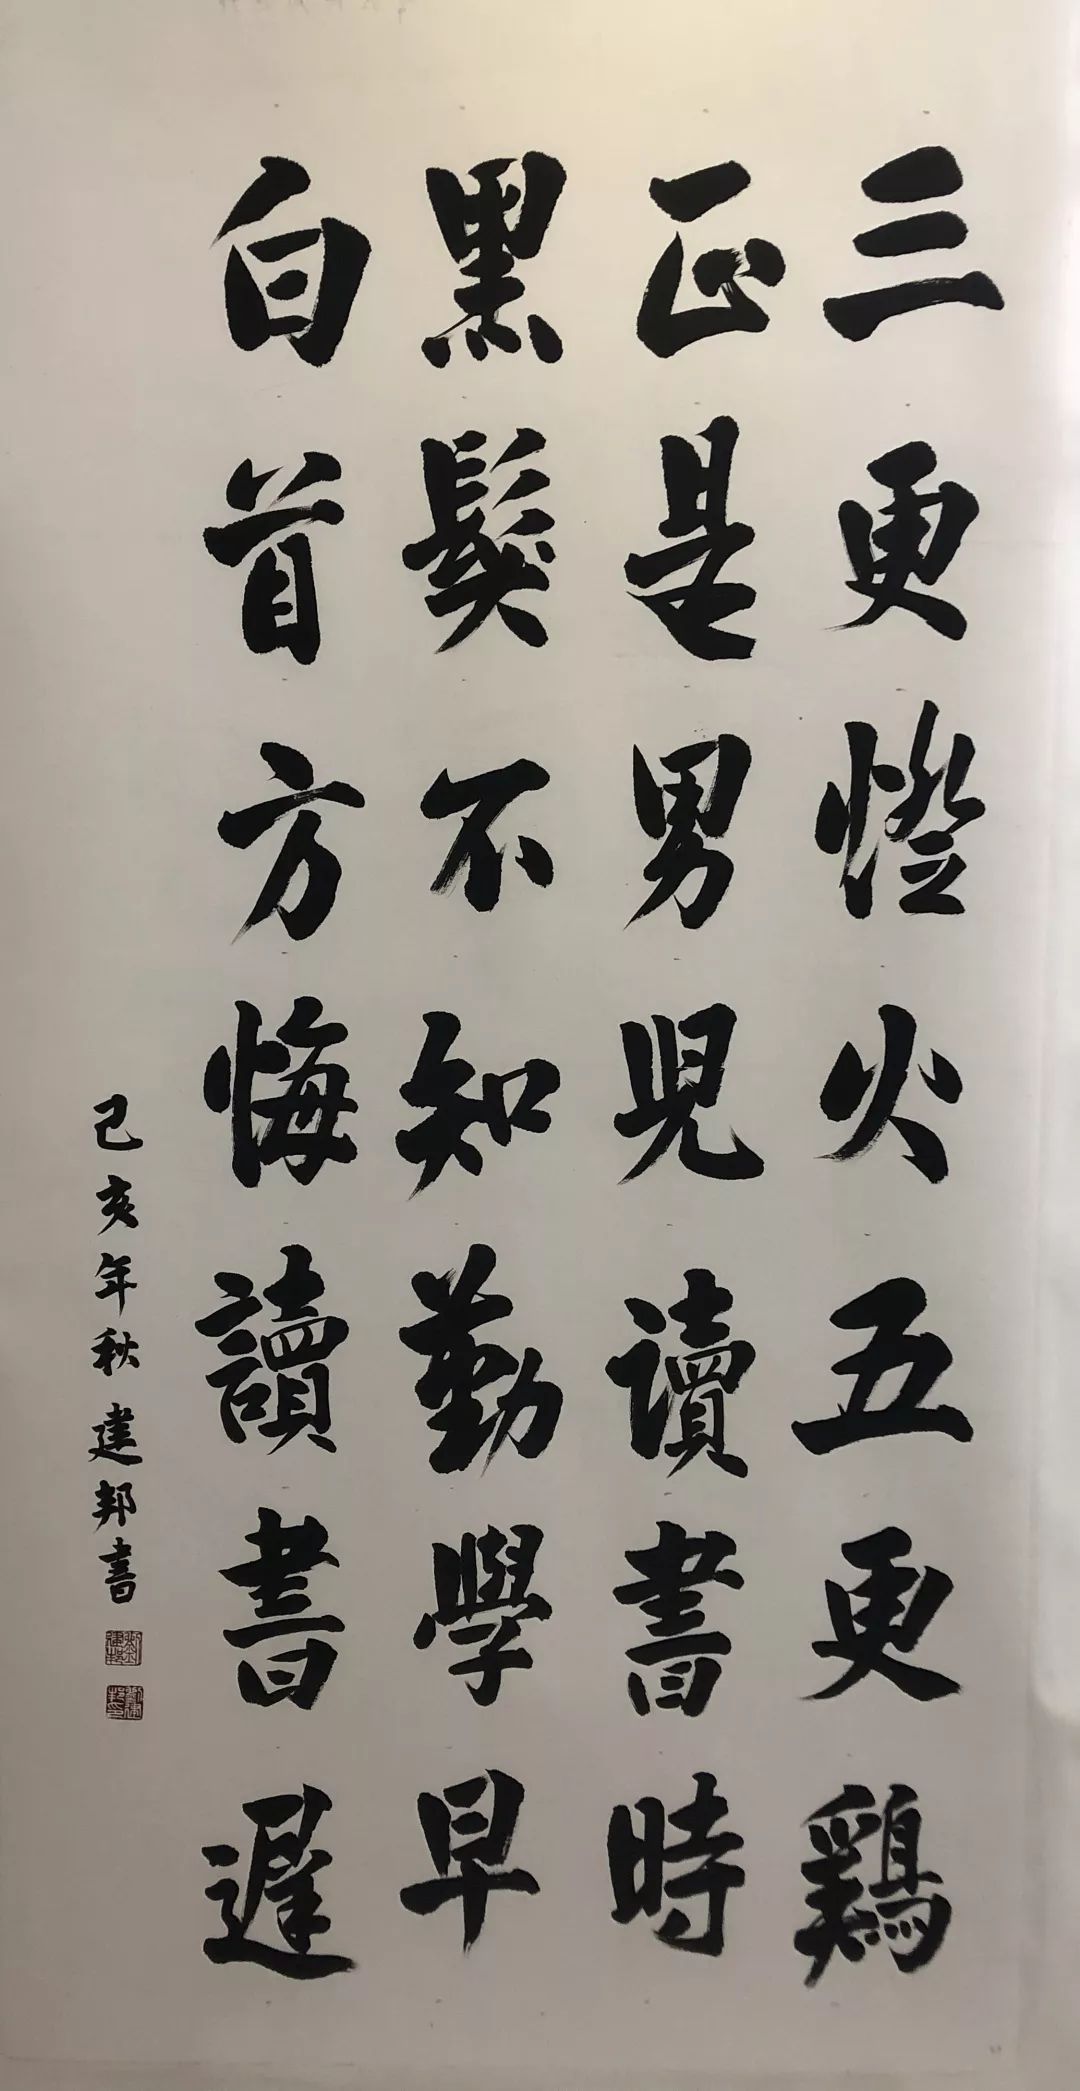 三更燈火五更鷄
正是男児讀書時
黑髮不知勤學早
白首方悔讀書遲
己亥年秋建邦書